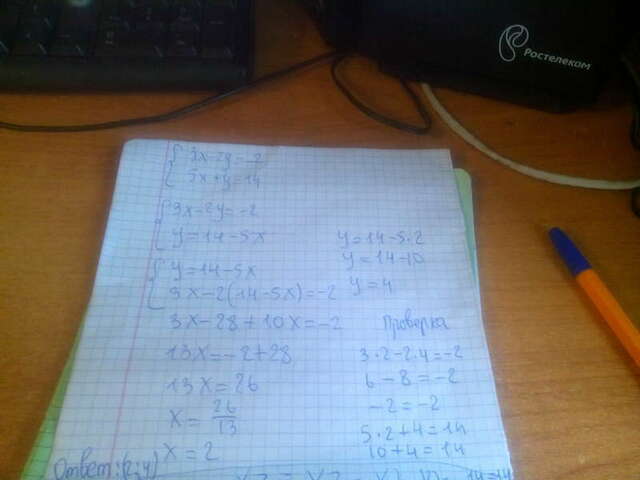 Ростелеком
3x-2y=-2
5x+y=14
3x-2y=-2
y=14-5x
y=14-5x
3x-2(14-5x)=-2
3x-28+10x=-2
13x=-2+28
13x=26
x=26/13
x=2
Ответ:(2;4)
y=14-5·2
y=14-10
y=4
Проверка
3·2-2·4=-2
6-8=-2
-2=-2
5·2+4=14
10+4=14
14=14